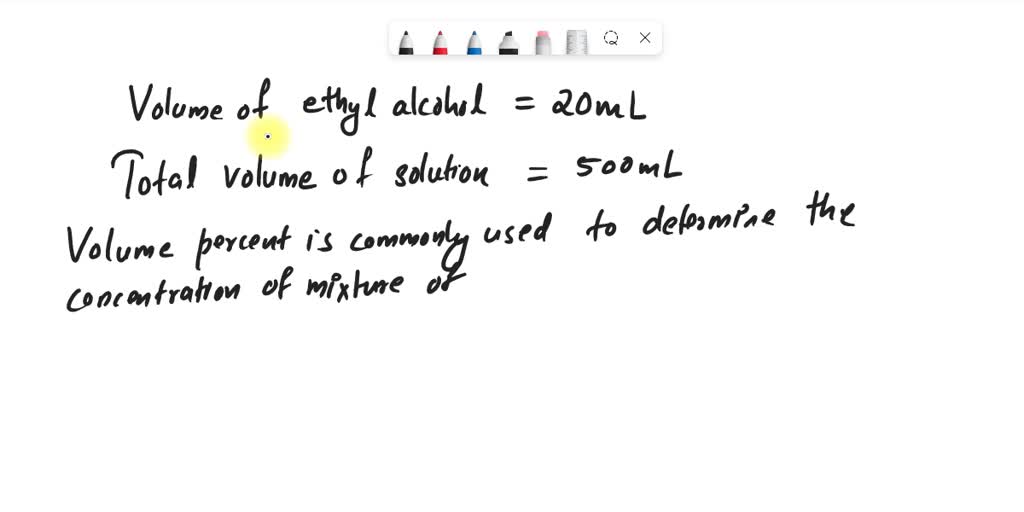 Volume of ethyl alcohol = 20mL
Total volume of solution = 500mL
Volume percent is commonly used to determine the
concentration of mixture of